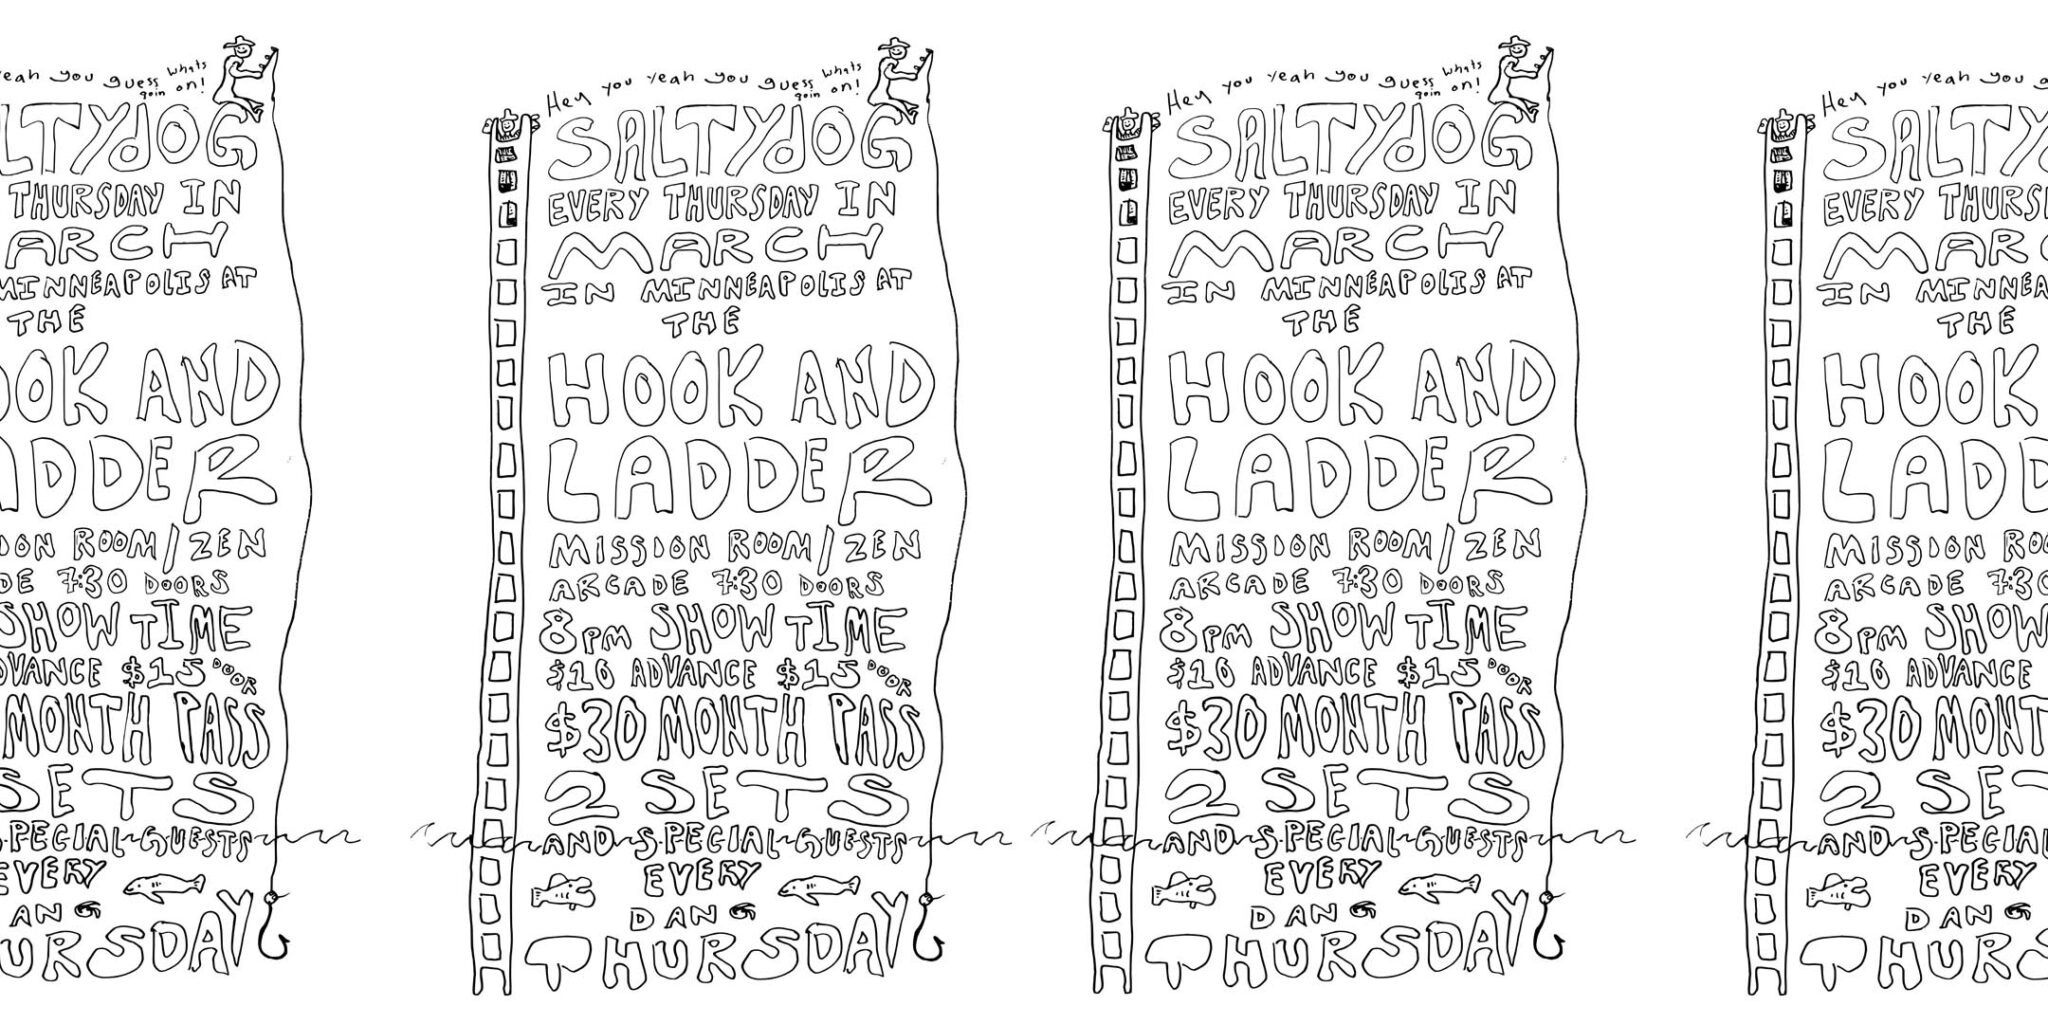 yeah you guess whats
goin on!
LTYdOG
THURSDAY IN
ARCH
MINNEAPOLIS AT
THE
OOK AND
ADDER
ION ROOM/ZEN
DE 7:30 DOORS
SHOW TIME
DVANCE $15 DOOR
MONTH PASS
SETS
SPECIAL GUESTS
EVERY
DAN
URSDAY
Hey you yeah you guess whats
goin on!
SALTYdOG
EVERY THURSDAY IN
MARCH
IN MINNEAPOLIS AT
THE
HOOK AND
LADDER
MISSION ROOM/ZEN
ARCADE 7:30 DOORS
8PM SHOW TIME
$10 ADVANCE $15 DOOR
$30 MONTH PASS
2 SETS
AND SPECIAL GUESTS
EVERY
DAN
THURSDAY
Hey you yeah you guess whats
goin on!
SALTYdOG
EVERY THURSDAY IN
MARCH
IN MINNEAPOLIS AT
THE
HOOK AND
LADDER
MISSION ROOM/ZEN
ARCADE 7:30 DOORS
8PM SHOW TIME
$10 ADVANCE $15 DOOR
$30 MONTH PASS
2 SETS
AND SPECIAL GUESTS
EVERY
DAN
THURSDAY
Hey you yeah you g
SALTY
EVERY THURS
MARC
IN MINNEA
THE
HOOK
LADD
MISSION ROO
ARCADE 7:30
8PM SHOW
$10 ADVANCE
$30 MONT
2 SE
AND SPECIAL
EVERY
DAN
THURS